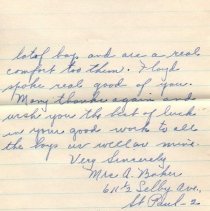 lot of boys and are a real
comfort too them. Floyd
spoke real good of you.
Many thanks again and
wish you the best of luck
in your good work to all
the boys as well as mine.
Very Sincerely
Mrs A. Baker
611½ Selby Ave.,
St Paul - 2